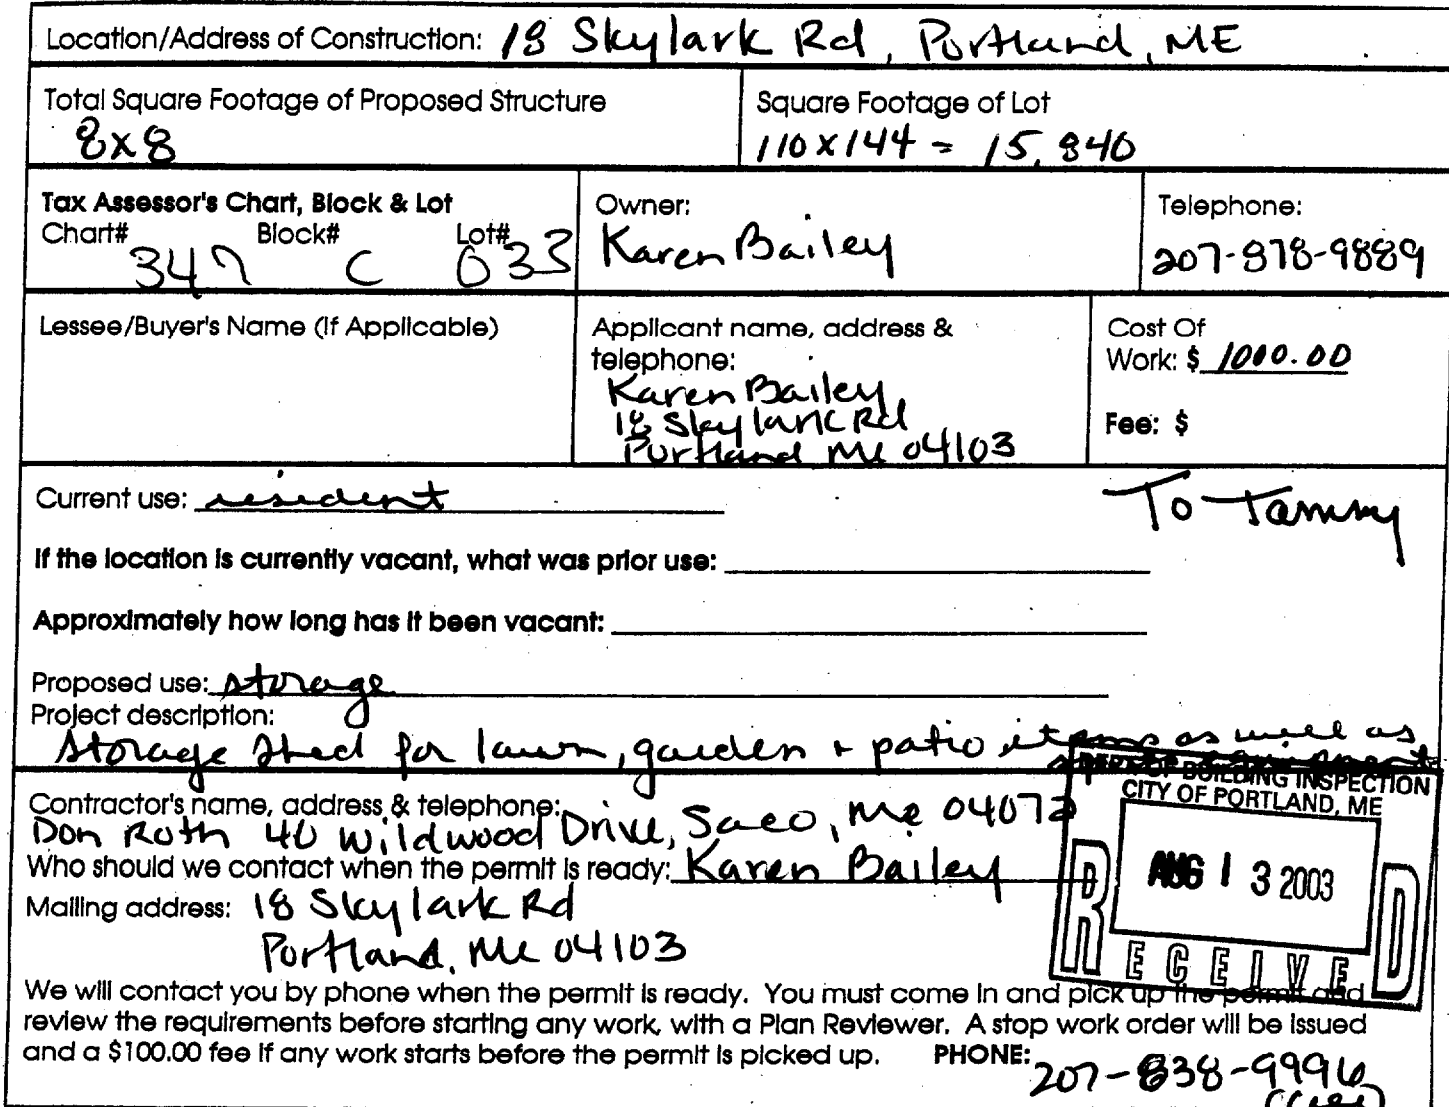 Location/Address of Construction: 18 Skylark Rd, Portland, ME
Total Square Footage of Proposed Structure
8x8
Square Footage of Lot
110 x 144 = 15,840
Tax Assessor's Chart, Block & Lot
Chart# Block# Lot#
347 C 033
Owner:
Karen Bailey
Telephone:
207-878-9889
Lessee/Buyer's Name (If Applicable)
Applicant name, address &
telephone:
Karen Bailey
18 Skylark Rd
Portland Me 04103
Cost Of
Work: $ 1000.00
Fee: $
Current use: resident
To Tammy
If the location is currently vacant, what was prior use:
Approximately how long has it been vacant:
Proposed use: storage
Project description:
storage shed for lawn, garden + patio items as well as
DEPT OF BUILDING INSPECTION
CITY OF PORTLAND, ME
AUG 13 2003
RECEIVED
Contractor's name, address & telephone:
Don Roth 40 Wildwood Drive, Saco, Me 04072
Who should we contact when the permit is ready: Karen Bailey
Mailing address: 18 Skylark Rd
Portland, Me 04103
We will contact you by phone when the permit is ready. You must come in and pick up the permit and
review the requirements before starting any work, with a Plan Reviewer. A stop work order will be issued
and a $100.00 fee if any work starts before the permit is picked up. PHONE: 207-838-9996
(cell)